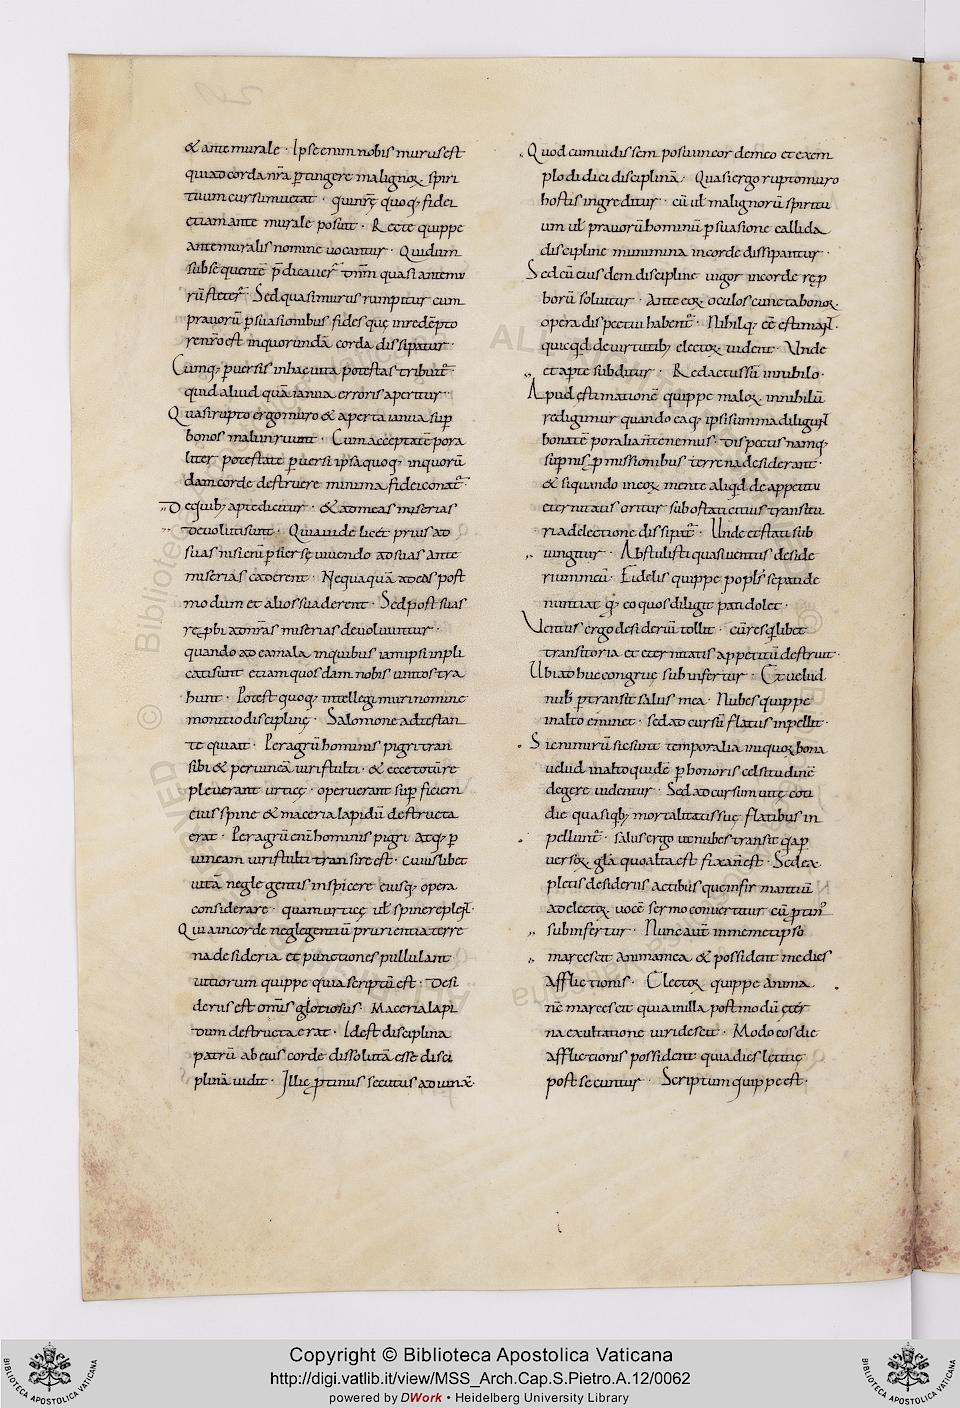 & ante murale · Ipse enim nobis murus est
qui ad corda nr̄a ꝑtingere malignoꝝ spiri
tuum cursum uetat · qui nr̄ę quoq; fidei
etiam ante murale posuit · Recte quippe
antemuralis nomine uocantur · Qui dum
subsequentē p̄dicauer̄ dn̄m quasi antemu
rū steter̄ · Sed quasi murus rumpitur cum
prauorū ꝑsuasionibus fides quę in redēpto
re nr̄o est in quorundā corda dissipatur ·
Cumq; ꝑuersis in hac uita potestas tribuit̄ ·
quid aliud quā ianua erroris aperitur ·
Quasi rupto ergo muro & aperta ianua suꝑ
bonos mali irruunt · Cum accepta tēpora
liter potestate ꝑuersi ipsa quoq; in quorū
dam corde destruere minima fidei conat̄ ·
De quib; apte dicitur · & ad meas miserias
deuoluti sunt · Quia uidelicēt prius ad
suas miseri ꝑ semetipse uiuendo ad suas ante
miserias caderent · Nequaquā ad eas post
modum et alios suaderent · Sed post suas
reꝓbi ad nr̄as miserias deuoluuntur ·
quando ad ea mala in quibus iam ipsi inpli
cati sunt etiam quosdam nobis unitos tra
hunt · Potest quoq; intellegi muri nomine
monitio disciplinę · Salomone adtestan
te qui ait · Per agrū hominis pigri tran
sibi & per uineā uiri stulti · & ecce totū re
pleuerant urticę · operuerant suꝑficiem
eius spine & maceria lapidū destructa
erat · Per agrū enī hominis pigri atq; ꝑ
uineam uiri stulti transire est · cuiuslibet
uitā neglegentis inspicere eiusq; opera
considerare · quam urticę ul̄ spine repleſt̄ ·
Quia in corde neglegentiū prurientia terre
na desideria et punctiones pullulant
uitiorum quippe quia scriptū est · Desi
deriis est omīs gloriosus · Maceria lapi
dum destructa erat · Id est disciplina
patrū ab eius corde dissolutā esse disci
plinā uidit · Illic ꝓtinus secutus adiunx̄ ·
Quod cum uidissem posui in corde meo et exem
plo didici disciplinā · Quasi ergo rupto muro
hostis ingreditur · cū ul̄ malignorū spiritu
um ul̄ prauorū hominū ꝑsuasione callida
discipline munimina in corde dissipantur ·
Sed cū eiusdem discipline uigor in corde reꝓ
borū soluitur · Ante eoꝝ oculos cuncta bonoꝝ
opera dispectui habent̄ · Nihilq; eē estimant ·
quicq̄d de uirtutib; electoꝝ uident · Unde
et aꝑte subditur · Redactus sū in nihilo ·
Apud estimationē quippe maloꝝ in nihilū
redigimur quando eaq; ipsi summa diligunt
bona tēporalia n̄ tenemus · Dispectis namq;
suꝑnis ꝓmissionibus terrena desiderant ·
& si quando in eoꝝ mente aliq̄d de appetitu
eternitatis oritur sub ostantius transitu
ria delectione dissipat̄ · Unde et statī sub
iungitur · Abstulisti quasi uentus deside
rium meū · Fidelis quippe popls̄ se pati de
nuntiat q; eo quos diligit pati dolet ·
Uentus ergo desideriū tollit · cū res q̄libet
transitoria et eternitatis appetitū destruit ·
Ubi adhuc congruę subinfertur · Et uelud
nub̄ ꝑtransiit salus mea · Nubes quippe
in alto eminet · sed ad cursū flatus inpellit ·
Sic nimirū sic sunt temporalia iniquoꝝ bona
uelud in alto quidē ꝑ honoris celsitudinē
degere uidentur · Sed ad cursum uitę coti
die quasi q̄b; mortalitatis suę flatibus in
pellunt̄ · salus ergo ut nubes transit q̄a ꝑ
uersoꝝ glā quo alta est fixa n̄ est · Sed ex
pletis desideriis actibus que infirmantiū
ad electoꝝ uocē sermo conuertitur cū ꝓtin̄
subinfertur · Nunc aūt in memetipso
marcescit anima mea & possident me dies
afflictionis · Electoꝝ quippe anima
nc̄ marcescit quia in illa postmodū ęter
na exultatione uiridescit · Modo eos die
afflictionis possident quia dies letitię
post secuntur · Scriptum quippe est ·
Copyright © Biblioteca Apostolica Vaticana
http://digi.vatlib.it/view/MSS_Arch.Cap.S.Pietro.A.12/0062
powered by DWork • Heidelberg University Library